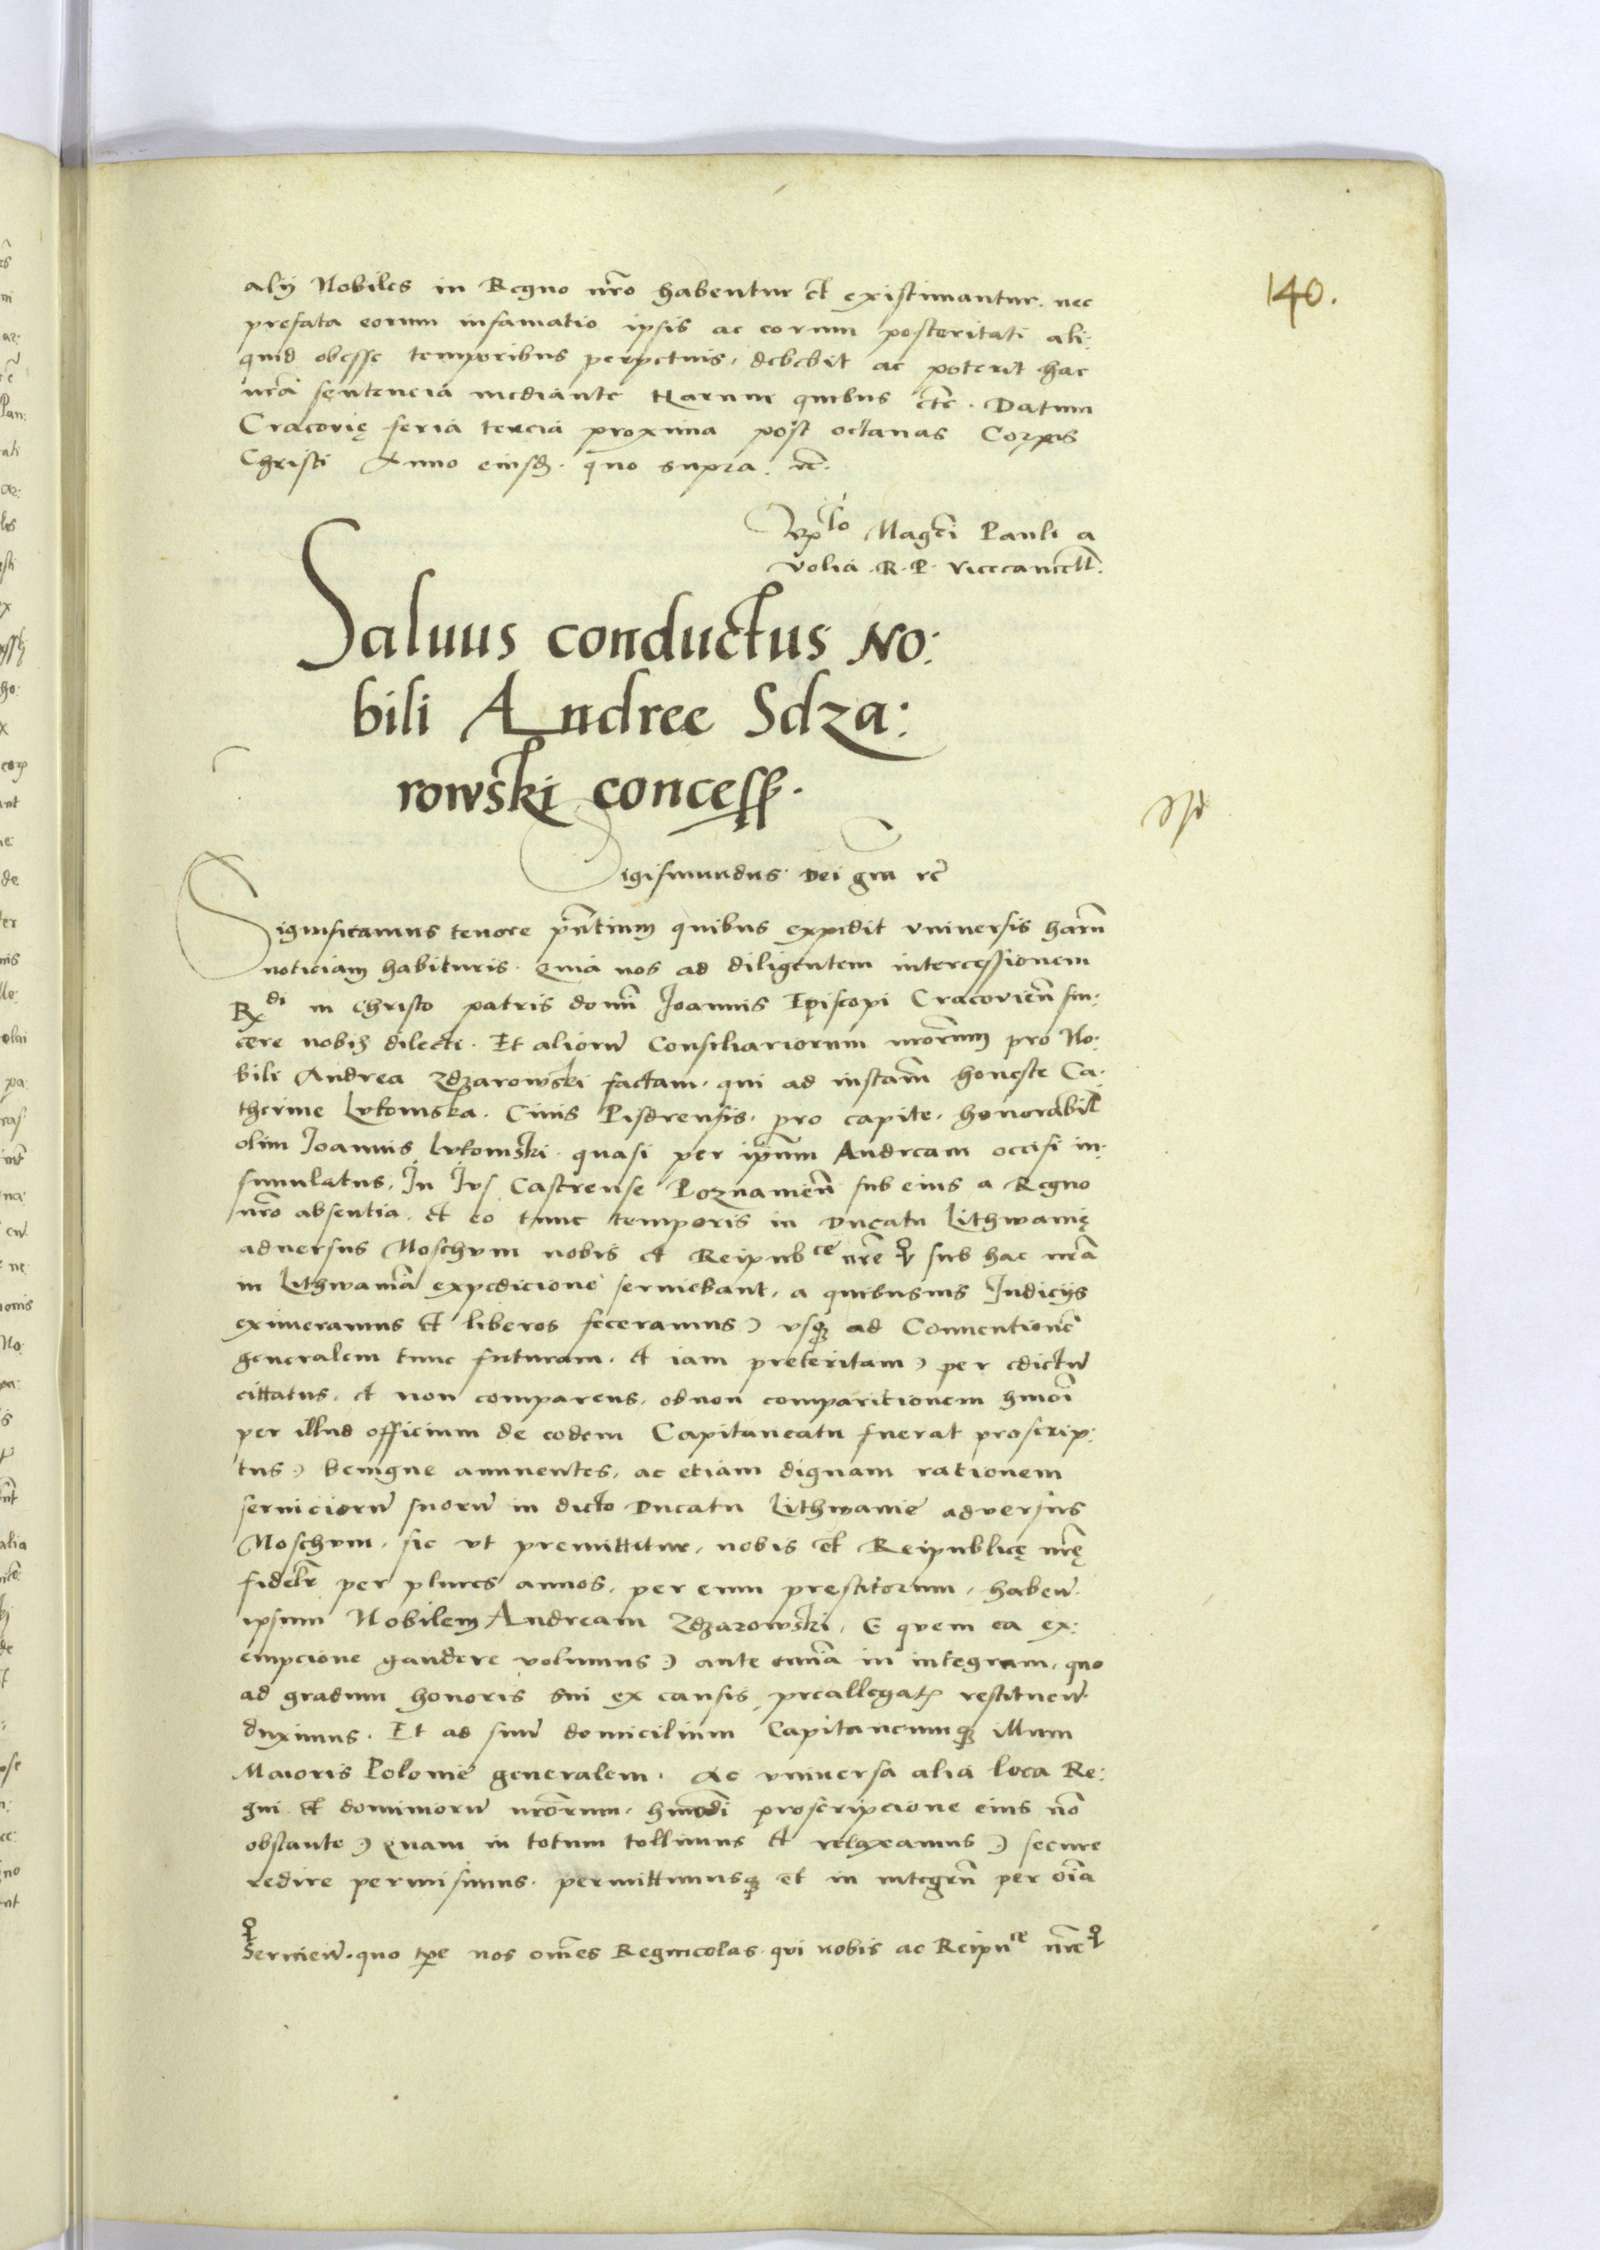 140.
alÿ Nobiles in Regno nr̃o habentur et existimantur. nec
prefata eorum infamatio ipsis ac eorum posteritati ali:
quid obesse temporibus perpetuis, debebit ac poterit hac
nr̃a sentencia mediante Harum quibus etc̃. Datum
Cracovię feria tercia proxima post octauas Corpis
Christi Anno eiusd. quo supra. rc̃.
Magc̃i Pauli a
volia. R. P. Vicecancell.
Saluus conductus No:
bili Andree Sdza:
rowski concess.
Sigismundus dei gra rc̃
Significamus tenore pñtium quibus expedit vniuersis harũ
noticiam habituris. Quia nos ad diligentem intercessionem
Rdi in Christo patris domĩ Joannis Episcopi Cracovieñ sin:
cere nobis dilecti. Et aliorũ Consiliariorum nrõrum pro No:
bili Andrea Zdzarowski factam. qui ad instam̃ honeste Ca:
therine Lutomska. Ciuis Pisdrensis. pro capite. honorabil
olim Joannis Lutomski. quasi per ipsum Andream occisi in:
simulatus. In Jus Castrense Poznamieñ sub eius a Regno
nr̃o absentia. et eo tunc temporis in Ducatu Lithwanię
adversus Moschvm nobis et Reipubce nr̃e ꝗ sub hac nr̃a
in Lithwania expedicione seruiebant, a quibusuis Judicÿs
exuneramus et liberos feceramus) vsq̃ ad Conuentionẽ
generalem tunc futuram. et iam preteritam) per edictũ
cittatus. et non comparens. ob non comparitionem hmõi
per illud officium de eodem Capitaneatu fuerat proscrip:
tus) benigne annuentes, ac etiam dignam rationem
seruiciorũ suorũ in dicto Ducatu Lithwanie adversus
Moschvm. sic vt premittitur, nobis et Reipublicę nr̃ę
fidelr̃ per plures annos. per eum prestitorum, habeñ.
ipsum Nobilem Andream Zdzarowski, E quem ea ex:
empcione gaudere volumus) ante omnia in integrum, quo
ad gradum honoris sui ex causis preallegatis restitueñ.
duximus. Et ad suũ domicilium Capitaneumq̃ illum
Maioris Polonie generalem. Ac vniuersa alia loca Re:
gni et dominiorũ nrõrum, hmodi proscripcione eius nõ
obstante) Quam in totum tollimus et relaxamus) secure
redire permisimus. permittimusq̃ et in integrũ per oĩa
ꝗ Serviẽn. quo tp̃e nos om̃es Regnicolas. qui nobis ac Reipuce nr̃e ꝗ